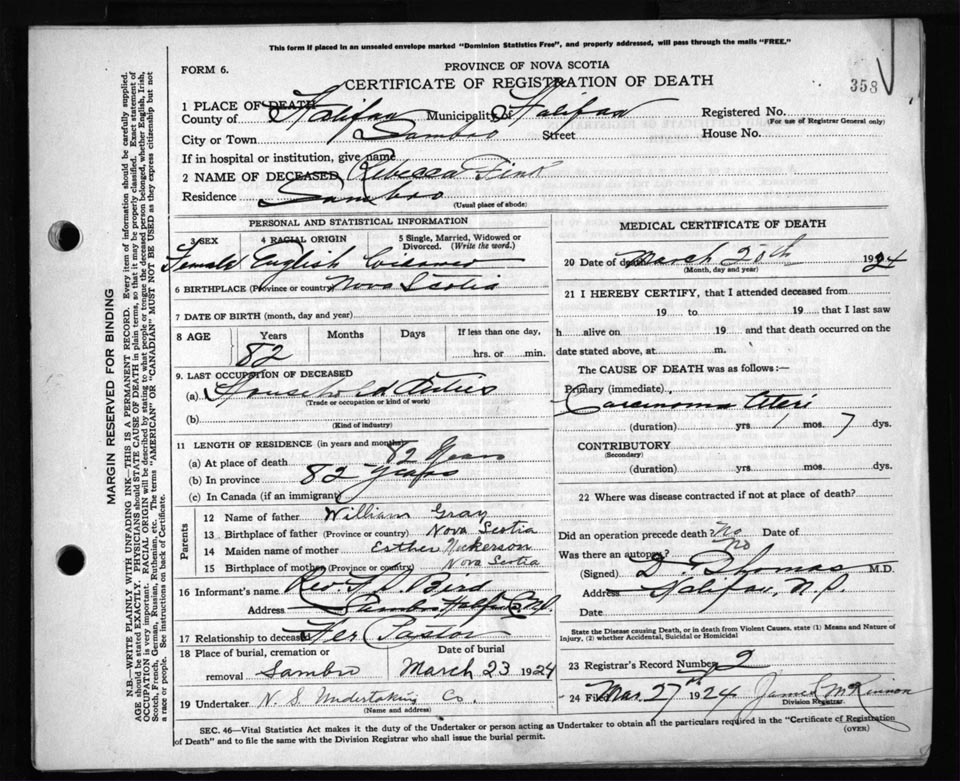 This form if placed in an unsealed envelope marked "Dominion Statistics Free", and properly addressed, will pass through the mails "FREE."
FORM 6.
PROVINCE OF NOVA SCOTIA
CERTIFICATE OF REGISTRATION OF DEATH
358
1 PLACE OF DEATH
County of Halifax Municipality of Halifax Registered No.
(For use of Registrar General only)
City or Town Sambro Street House No.
If in hospital or institution, give name
2 NAME OF DECEASED Rebecca Fink
Residence Sambro
(Usual place of abode)
PERSONAL AND STATISTICAL INFORMATION
3 SEX 4 RACIAL ORIGIN 5 Single, Married, Widowed or Divorced. (Write the word.)
Female English Widowed
6 BIRTHPLACE (Province or country) Nova Scotia
7 DATE OF BIRTH (month, day and year)
8 AGE Years Months Days If less than one day,
82 hrs. or min.
9. LAST OCCUPATION OF DECEASED
(a) Household Duties
(Trade or occupation or kind of work)
(b)
(Kind of industry)
11 LENGTH OF RESIDENCE (in years and months)
(a) At place of death 82 Years
(b) In province 82 Years
(c) In Canada (if an immigrant)
Parents
12 Name of father William Gray
13 Birthplace of father (Province or country) Nova Scotia
14 Maiden name of mother Esther Nickerson
15 Birthplace of mother (Province or country) Nova Scotia
16 Informant's name Rev. Bird
Address Sambro Halifax
17 Relationship to deceased Her Pastor
18 Place of burial, cremation or removal Sambro
Date of burial
March 23 1924
19 Undertaker N. S. Undertaking Co.
(Name and address)
MEDICAL CERTIFICATE OF DEATH
20 Date of death March 20th 1924
(Month, day and year)
21 I HEREBY CERTIFY, that I attended deceased from
19 to 19 that I last saw
h alive on 19 and that death occurred on
date stated above, at m.
The CAUSE OF DEATH was as follows:—
Primary (immediate)
Carcinoma Uteri
(duration) yrs. mos. 7 dys.
CONTRIBUTORY
(Secondary)
(duration) yrs. mos. dys.
22 Where was disease contracted if not at place of death?
Did an operation precede death? No Date of
Was there an autopsy? No
(Signed) D. Thomas M.D.
Address Halifax, N.S.
Date
State the Disease causing Death, or in death from Violent Causes, state (1) Means and Nature of
Injury, (2) whether Accidental, Suicidal or Homicidal
23 Registrar's Record Number 2
24 Filed Mar. 27th 1924 James McKinnon
Division Registrar.
SEC. 46—Vital Statistics Act makes it the duty of the Undertaker or person acting as Undertaker to obtain all the particulars required in the "Certificate of Registration
of Death" and to file the same with the Division Registrar who shall issue the burial permit.
(OVER)
MARGIN RESERVED FOR BINDING
N.B.—WRITE PLAINLY WITH UNFADING INK—THIS IS A PERMANENT RECORD. Every item of information should be carefully supplied.
AGE should be stated EXACTLY. PHYSICIANS should STATE CAUSE OF DEATH in plain terms, so that it may be properly classified. Exact statement of
OCCUPATION is very important. RACIAL ORIGIN will be described by stating to what people or tongue the deceased person belonged, whether English, Irish,
Scotch, French, German, Russian, Ruthenian, etc. The terms "AMERICAN" OR "CANADIAN" MUST NOT BE USED as they express citizenship but not
a race or people. See instructions on back of Certificate.